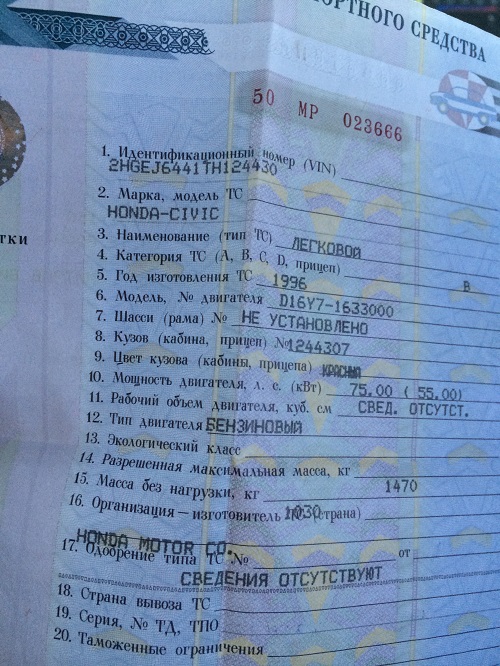 ПОРТНОГО СРЕДСТВА
50 МР 023666
1. Идентификационный номер (VIN)
2HGEJ6441TH124430
2. Марка, модель ТС
HONDA-CIVIC
3. Наименование (тип ТС) ЛЕГКОВОЙ
4. Категория ТС (A, B, C, D, прицеп) B
5. Год изготовления ТС 1996
6. Модель, № двигателя D16Y7-1633000
7. Шасси (рама) № НЕ УСТАНОВЛЕНО
8. Кузов (кабина, прицеп) № 1244307
9. Цвет кузова (кабины, прицепа) КРАСНЫЙ
10. Мощность двигателя, л. с. (кВт) 75.00 ( 55.00)
11. Рабочий объем двигателя, куб. см СВЕД. ОТСУТСТ.
12. Тип двигателя БЕНЗИНОВЫЙ
13. Экологический класс
14. Разрешенная максимальная масса, кг
15. Масса без нагрузки, кг 1470
16. Организация – изготовитель ТС (страна) 1030
HONDA MOTOR CO.
17. Одобрение типа ТС № от
СВЕДЕНИЯ ОТСУТСТВУЮТ
18. Страна вывоза ТС
19. Серия, № ТД, ТПО
20. Таможенные ограничения
тки